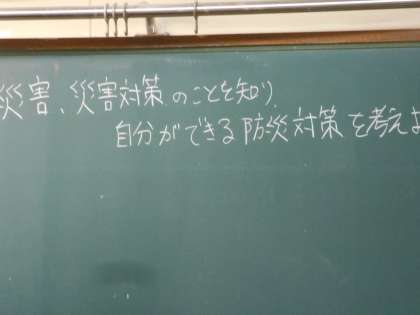 災害、災害対策のことを知り、
自分ができる防災対策を考えよ